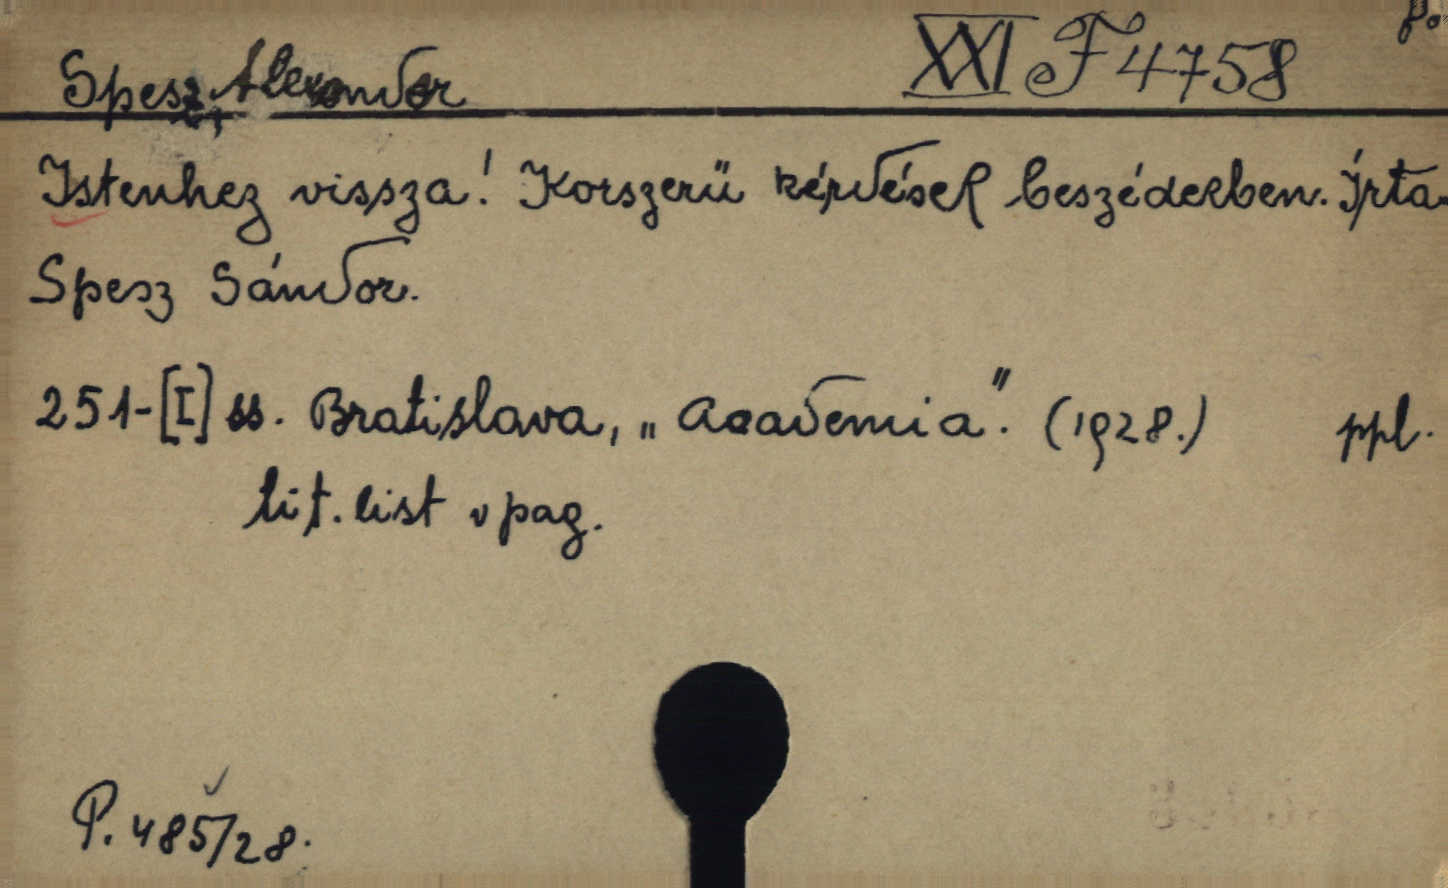 Spesz, Alexander XXI F 4758
Istenhez vissza! Korszerű kérdések beszédekben. Írta
Spesz Sándor.
251-[I] ss. Bratislava, „Academia". (1928.) ppl.
tit. list v pag.
P. 485/28.